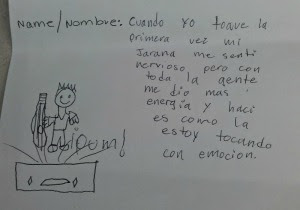 Name/Nombre: Cuando yo toave la
primera vez mi
Jarana me senti
nervioso, pero con
toda la gente
me dio mas
energía y haci
es como la
estoy tocando
con emocion.
¡pom!